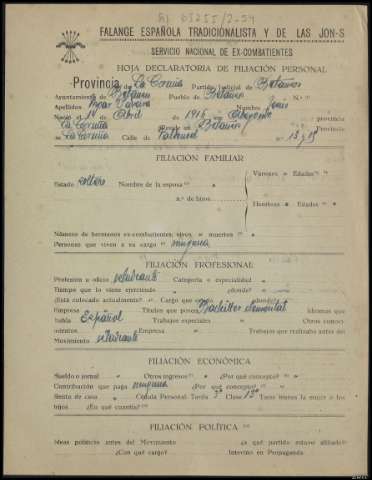 FALANGE ESPAÑOLA TRADICIONALISTA Y DE LAS JON-S
SERVICIO NACIONAL DE EX-COMBATIENTES
HOJA DECLARATORIA DE FILIACIÓN PERSONAL
Provincia de La Coruña Partido Judicial de Betanzos
Ayuntamiento de Betanzos Pueblo de Betanzos N.º
Apellidos Nombre Jesús
Nació el 14 de Abril de 1916 en provincia
La Coruña Reside en Betanzos provincia
de La Coruña Calle de n.º 13 y 15
FILIACIÓN FAMILIAR
Estado soltero Nombre de la esposa
Varones » Edades
n.º de hijos
Hembras » Edades »
Número de hermanos ex-combatientes, vivos, » muertos »
Personas que viven a su cargo ninguna
FILIACIÓN PROFESIONAL
Profesión u oficio estudiante Categoría o especialidad »
Tiempo que lo viene ejerciendo » ¿dónde? »
¿Está colocado actualmente? Cargo que
Empresa » Títulos que posee Bachiller elemental Idiomas que
habla Español Trabajos especiales » Otros conoci-
mientos » Empresa » Trabajos que realizaba antes del
Movimiento estudiante
FILIACIÓN ECONÓMICA
Sueldo o jornal » Otros ingresos » ¿Por qué concepto? »
Contribución que paga ninguna ¿Por qué concepto? »
Renta de casa » Cédula Personal Tarifa Clase 13ª Tiene bienes la mujer o los
hijos » ¿En qué cuantía? »
FILIACIÓN POLÍTICA
Ideas políticas antes del Movimiento ¿a qué partido estuvo afiliado?
¿Con qué cargo? Intervino en Propaganda